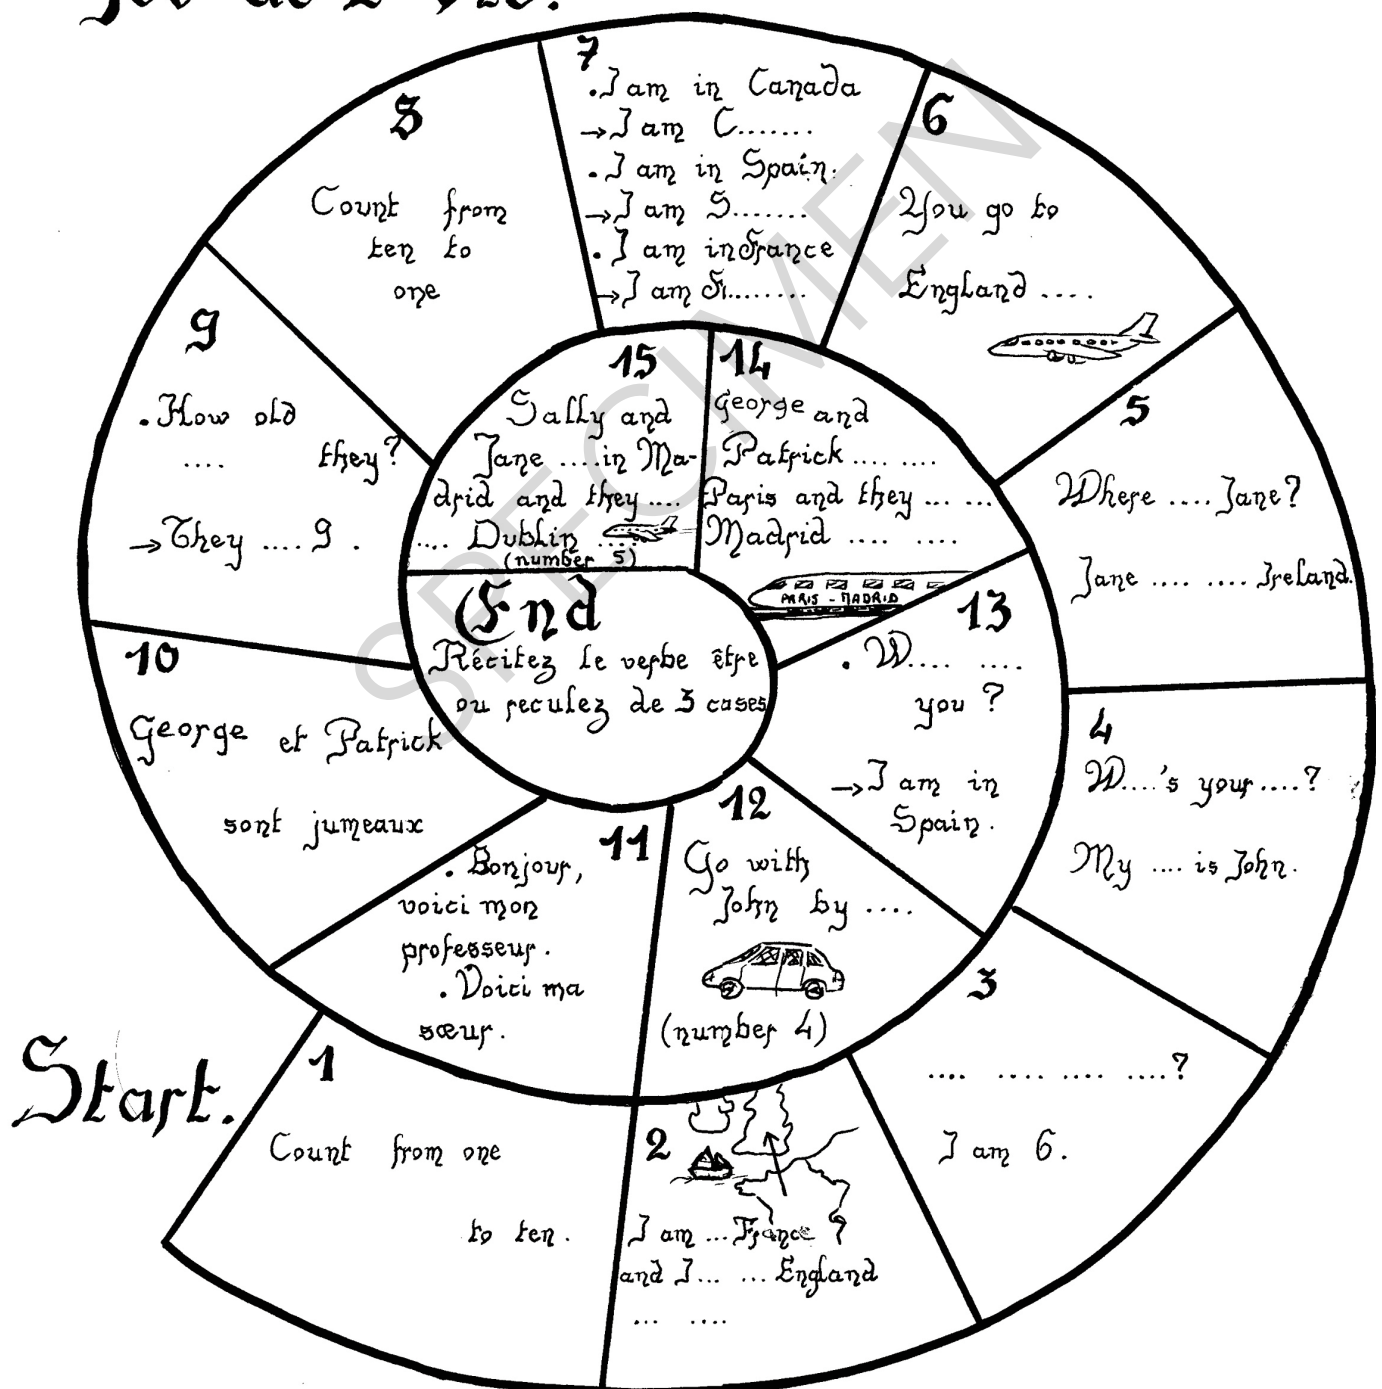 Start.
1
Count from one
to ten.
2
I am ... France
and I ... ... England
... ....
3
.... .... .... ....?
I am 6.
4
W....'s your ....?
My .... is John.
5
Where .... Jane?
Jane .... .... Ireland.
6
You go to
England ....
7
.I am in Canada
→I am C.......
.I am in Spain.
→I am S.......
.I am in France
→I am Fr.......
8
Count from
ten to
one
9
.How old
.... they?
→They .... 9 .
10
George et Patrick
sont jumeaux
11
. Bonjour,
voici mon
professeur.
. Voici ma
sœur.
12
Go with
John by ....
(number 4)
13
. W.... ....
you ?
→I am in
Spain.
14
George and
Patrick .... ....
Paris and they ... ...
Madrid .... ....
PARIS - MADRID
15
Sally and
Jane .... in Ma-
drid and they ....
.... Dublin ....
(number 5)
End
Récitez le verbe être
ou reculez de 3 cases
SPECIMEN